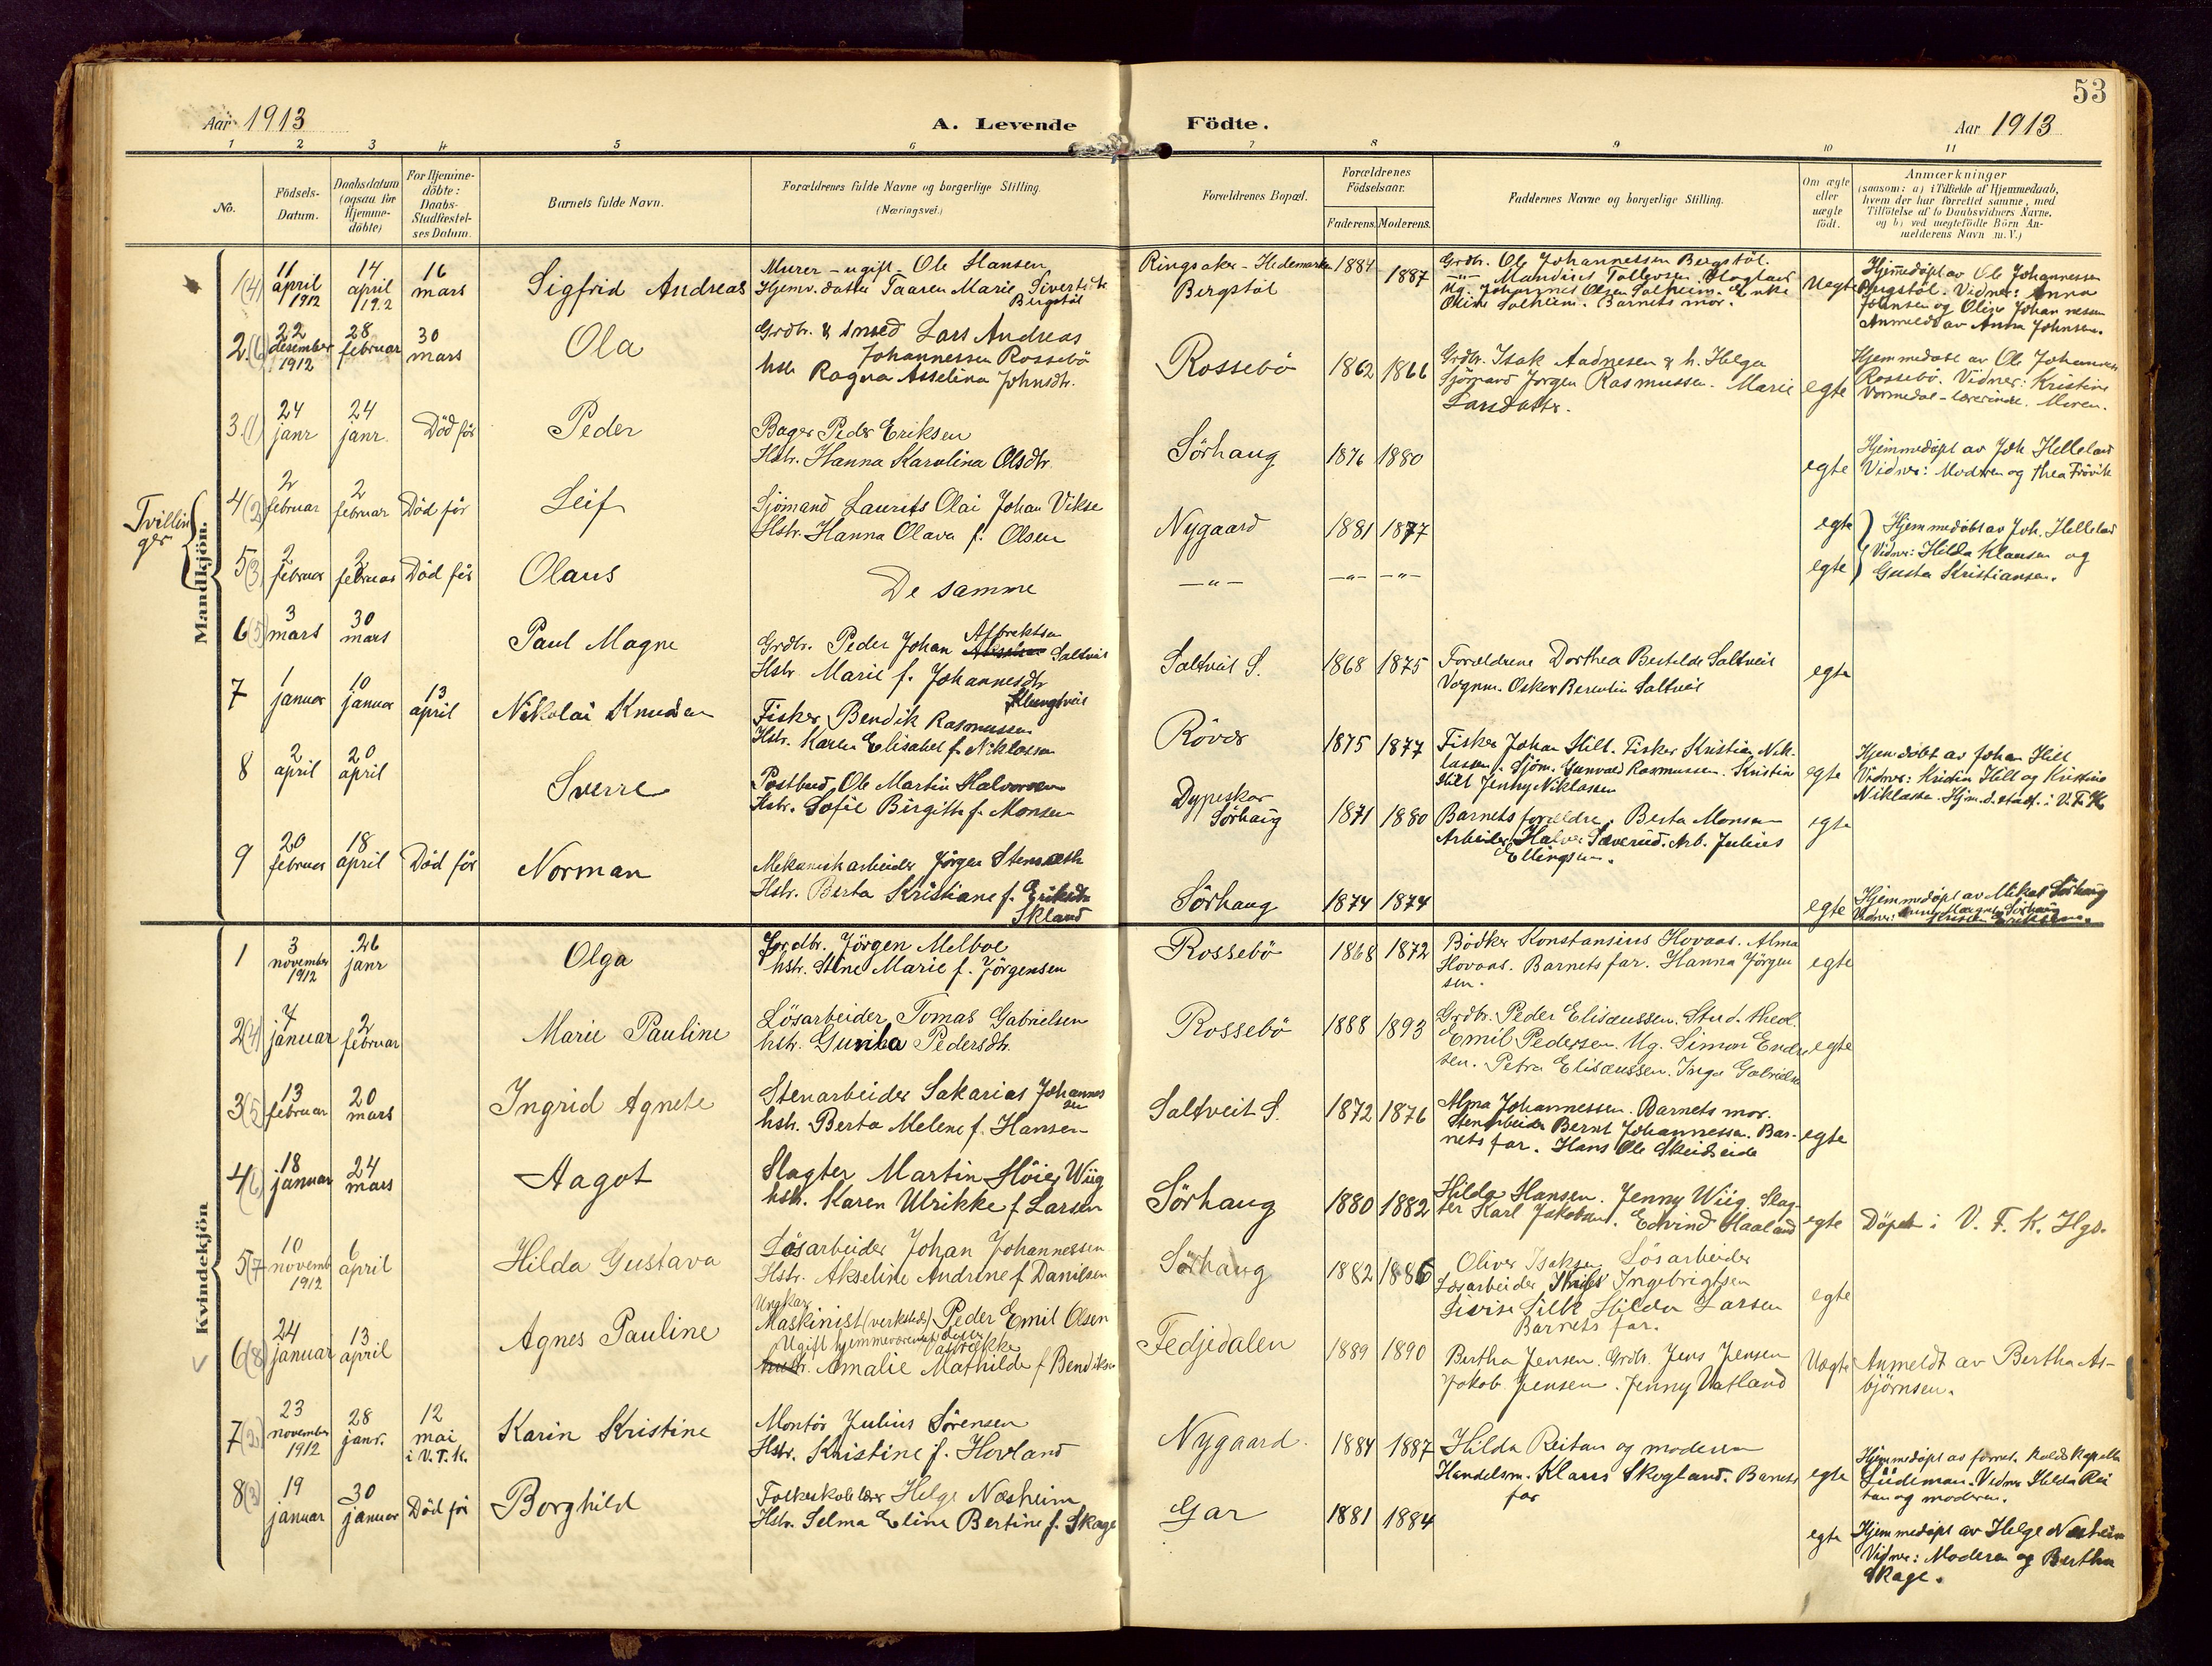 53
Aar 1913
A. Levende Födte.
Aar 1913
1 2 3 4 5 6 7 8 9 10 11
No.
Födsels-
Datum.
Daabsdatum
(ogsaa for
Hjemme-
döbte)
For Hjemme-
döbte:
Daabs-
Stadfæstel-
ses Datum.
Barnets fulde Navn.
Forældrenes fulde Navne og borgerlige Stilling.
(Næringsvei.)
Forældrenes Bopæl.
Forældrenes
Födselsaar.
Faderens. Moderens.
Faddernes Navne og borgerlige Stilling.
Om ægte
eller
uægte
födt.
Anmærkninger
(saasom: a) i Tilfælde af Hjemmedaab,
hvem der har forrettet samme, med
Tilföielse af to Daabsvidners Navne.
og b) ved uegtefödte Börn An-
melderens Navn m. V.)
Mandkjön.
Tvillin
ger
1(4) 11 april 1912 14 april 1912 16 mars Sigfrid Andreas
Murer - ugift - Ole Hansen
Hjemv. datter Taaren Marie Sivertsdtr
Bergstöl
Ringsaker - Hedemarken
Bergstöl
1884 1887
Grdbr. Ole Johannessen Bergstöl.
Ug. Johannes Olsen Solheim. Enke
Oline Solheim. Barnets mor.
Uegte
Hjemmedöpt av Ole Johannessen
Bergstöl. Vidner: Anna
Johnsen og Oline Johannessen
Anmeldt av Anna Johnsen.
2.(6) 22 desember 1912 28 februar 30 mars Ola
Grdbr. & smed Lars Andreas
Johannessen Rossebö
hstr Ragna Asselina Johnsdtr.
Rossebö 1862 1866
Grdbr. Isak Aadnesen & h. Helga
Sjömand Jörgen Rasmussen. Marie
Larsdatter.
egte
Hjemmedöbt av Ole Johannessen
Rossebö. Vidner: Kristine
Vormedal - lærerinde. Moren.
3.(1) 24 janr 24 janr. Död för Peder
Bager Peder Eriksen
Hstr. Hanna Karolina Olsdtr.
Sörhaug 1876 1880
egte
Hjemmedöpt av Joh. Helleland
Vidner: Moderen og Thea Frövik
4(2) 2 februar 2 februar Död för Leif
Sjömand Laurits Olai Johan Vikse
Hstr. Hanna Olava f. Olsen
Nygaard 1881 1877
egte
Hjemmedöbt av Joh. Helleland
Vidner: Hilda Klausen og
Gusta Kristiansen.
5(3) 2 februar 2 februar Död för Olaus
De samme
—"— —"— —"—
egte
6(5) 3 mars 30 mars Paul Magne
Grdbr. Peder Johan Albrektsen Saltveit
Hstr. Marie f. Johannesdtr
Klungtveit
Saltveit S. 1868 1875
Forældrene Dorthea Bertilde Saltveit
Vognm. Oskar Berentin Saltveit
egte
7 1 januar 10 januar 13 april Nikolai Knudsen
Fisker Bendik Rasmussen
Hstr. Karen Elisabet f. Niklassen
Rövær 1875 1877
Fisker Johan Hill. Fisker Kristian Nik-
lassen. Sjöm. Gunvald Rasmussen. Kristine
Hill Jenny Niklassen
egte
Hjemdöbt av Johan Hill
Vidner: Kristin Hill og Kristine
Niklassen. Hjm. d. stadf. i V. F. K
8 2 april 20 april Sverre
Postbud Ole Martin Halvorsen
Hstr. Sofie Birgitte f. Monsen
Dypeskar
Sörhaug
1871 1880
Barnets forældre. Berta Monsen
Arbeider Halvor Sæverud. Arb. Julius
Ellingsen.
egte
9 20 februar 18 april Död för Norman
Mekanisk arbeider Jörgen Stensæth
Hstr. Berta Kristiane f. Eriksdtr
Skland
Sörhaug 1874 1874
egte
Hjemmedöpt av Mikal Sörhaug
Kvindekjön
1 3 november 1912 26 janr Olga
Grdbr. Jörgen Melboe
hstr. Stine Marie f. Jörgensen
Rossebö 1868 1872
Bödker Konstansius Hovaas. Alma
Hovaas. Barnets far. Hanna Jörgen
sen.
egte
2(4) 7 januar 2 februar Marie Pauline
Lösarbeider Tomas Gabrielsen
hstr. Gunila Pedersdtr.
Rossebö 1888 1893
Grdbr. Peder Elisæussen. Stud. theol.
Emil Pedersen. Ug. Simon Endre
sen. Petra Elisæussen. Inga Gabrielsen
egte
3(5) 13 februar 20 mars Ingrid Agnete
Stenarbeider Sakarias Johannes
sen
hstr. Berta Melene f. Hansen
Saltveit S. 1872 1876
Alma Johannessen. Barnets mor.
Stenarbeider Bernt Johannessen. Bar-
nets far. Hans Ole Skeidseide
egte
4(6) 18 januar 24 mars Aagot
Slagter Martin Höier Wiig
hstr. Karen Ulrikke f Larsen
Sörhaug 1880 1882
Hilda Hansen. Jenny Wiig. Slag-
ter Karl Jakobsen. Edvind Haaland
egte
Döpt i V. F. K. Hgs.
5(7 10 novemb 1912 6 april Hilda Gustava
Lösarbeider Johan Johannessen
Hstr. Akseline Andrine f Danielsen
Sörhaug 1882 1886
Oliver Isaksen Lösarbeider
Lösarbeider Nils Ingebrigtsen
Sivine Silk Hilda Larsen
Barnets far.
egte
6(8) 24 januar 13 april Agnes Pauline
Ungkar
Maskinist (verksted) Peder Emil Olsen
Ugift hjemmeværende datter Vatrekke
hustr. Amalie Mathilde f Bendiksen
Fedjedalen 1889 1890
Bertha Jensen. Grdbr. Jens Jensen
Jakob Jensen. Jenny Vatland
Uegte
Anmeldt av Bertha As-
björnsen.
7(2) 23 november 1912 28 janr. 12 mai i V. F. K. Karin Kristine
Montör Julius Sörensen
Hstr. Kristine f. Hovland
Nygaard. 1884 1887
Hilda Reitan og moderen
Handelsm. Klaus Skogland. Barnets
far
egte
Hjemmedöpt av forret. Kaldskapellan
Lüdeman. Vidner Hilda Rei
tan og moderen.
8(3) 19 januar 30 januar Död för Borghild
Folkeskolelærer Helge Næsheim
Hstr. Selma Eline Bertine f. Skage
Gar 1881 1884
egte
Hjemmedöpt av Helge Næsheim
Vidner: Moderen og Bertha
Skage.